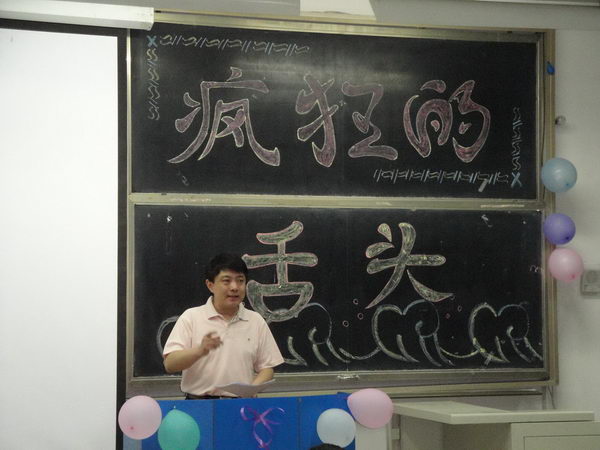 疯狂的
舌头